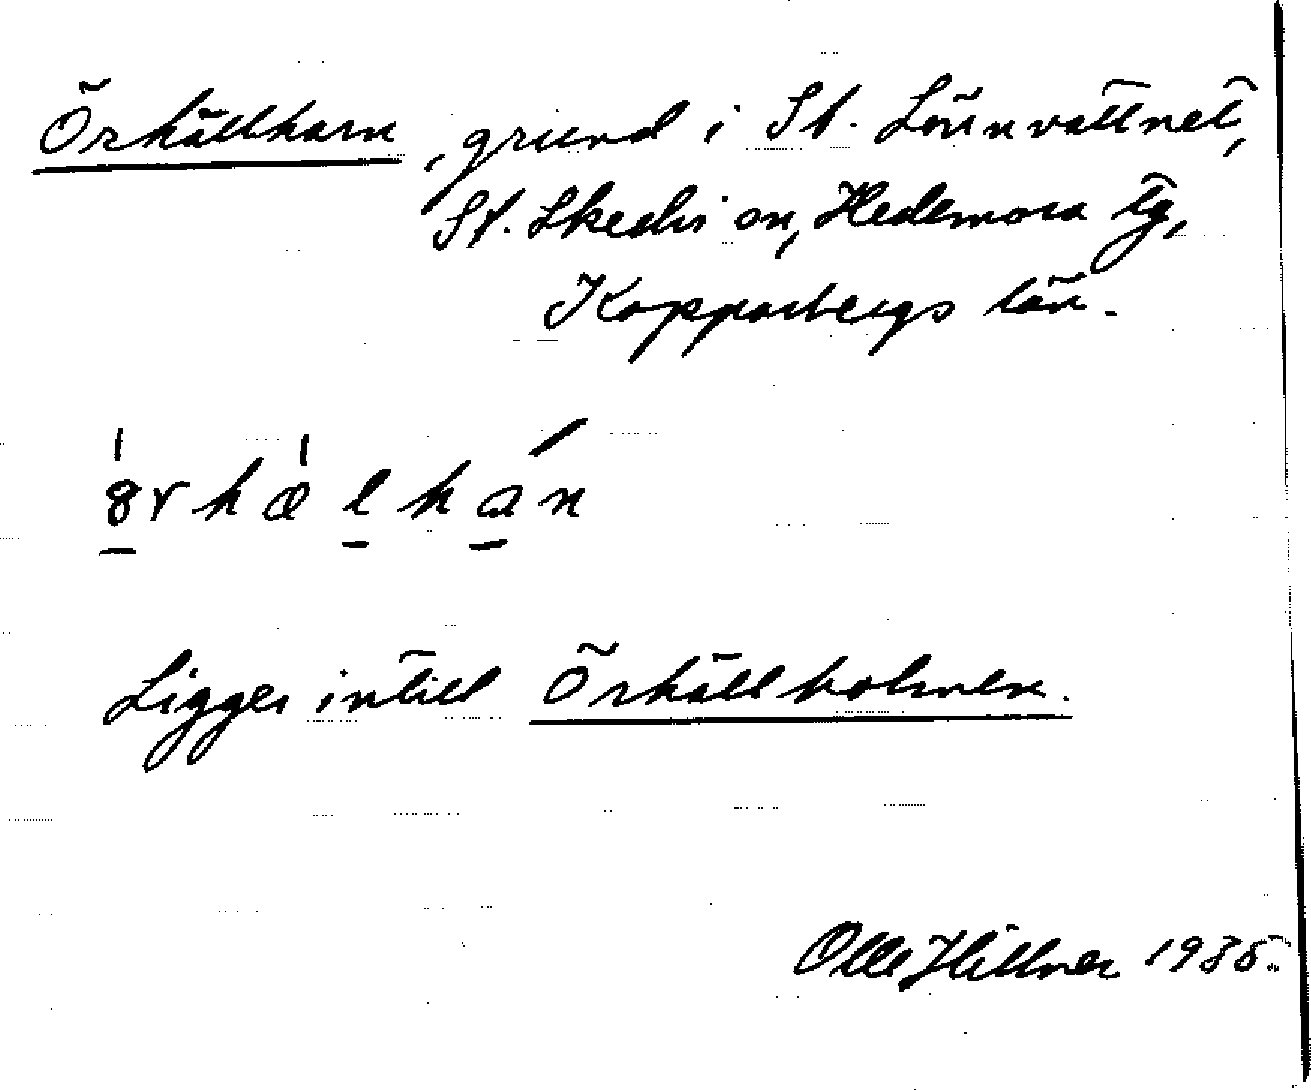 Örhällharn, grund i St. Lönnvattnet,
St. Skedvi sn, Hedemora tg,
Kopparbergs län.
Ligger intill Örhällholmen.
Olle Hillner 1935.